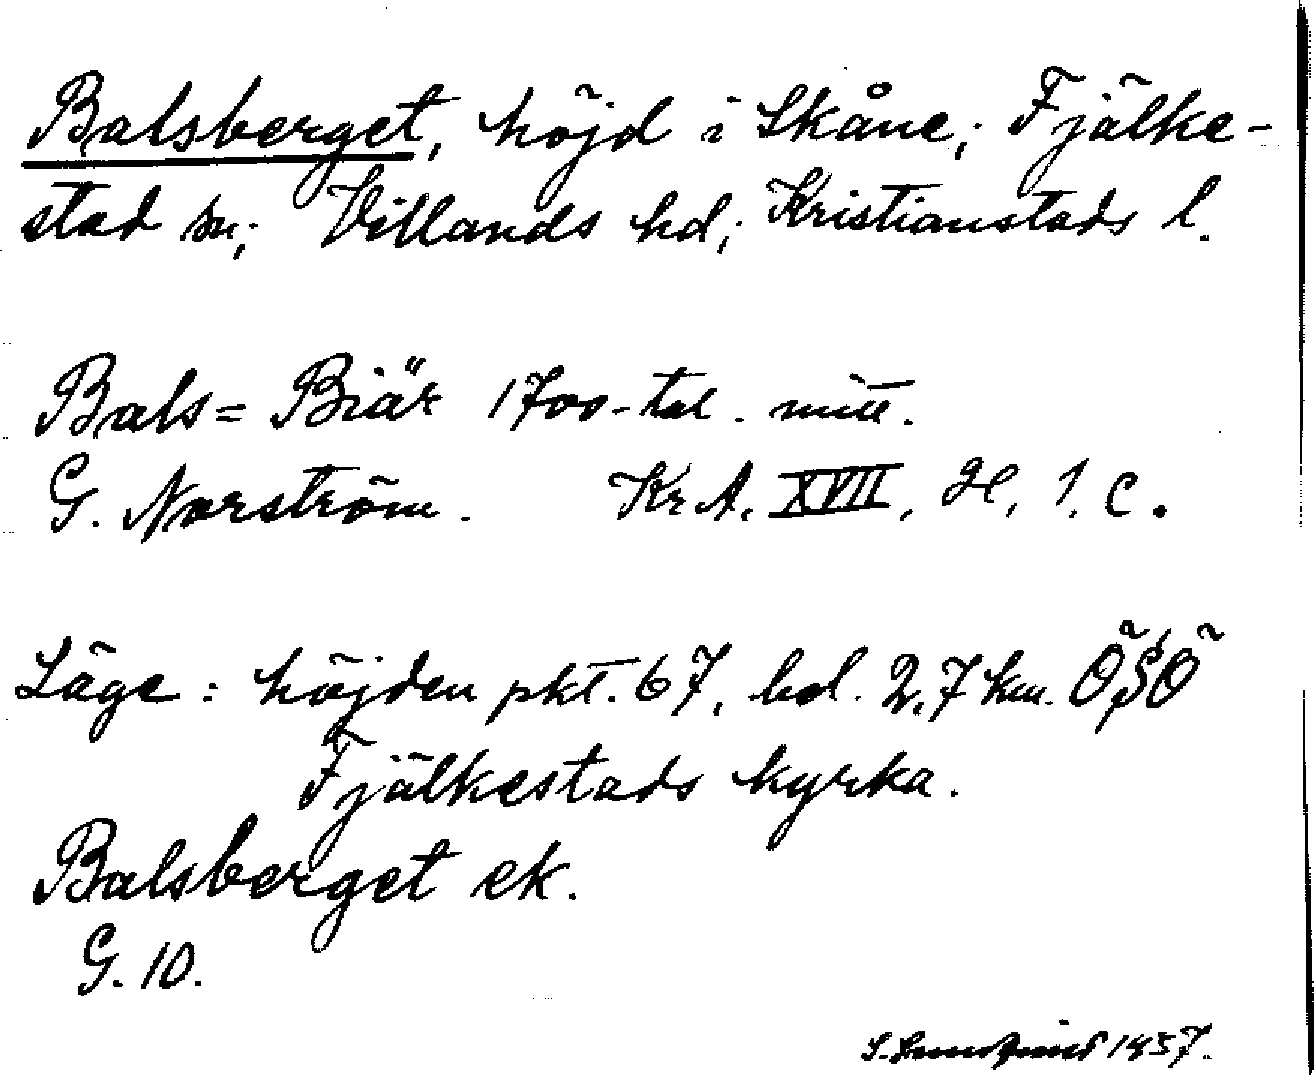 Balsberget, höjd i Skåne; Fjälke-
stad sn; Villands hd; Kristianstads l.
Bals= Biär 1700-tal. mitt.
G. Norström. KrA. XVII, H, 1. C.
Läge: höjden pkt. 67, bel. 2,7 km. ÖSÖ
Fjälkestads kyrka.
Balsberget ek.
G. 10.
1937.